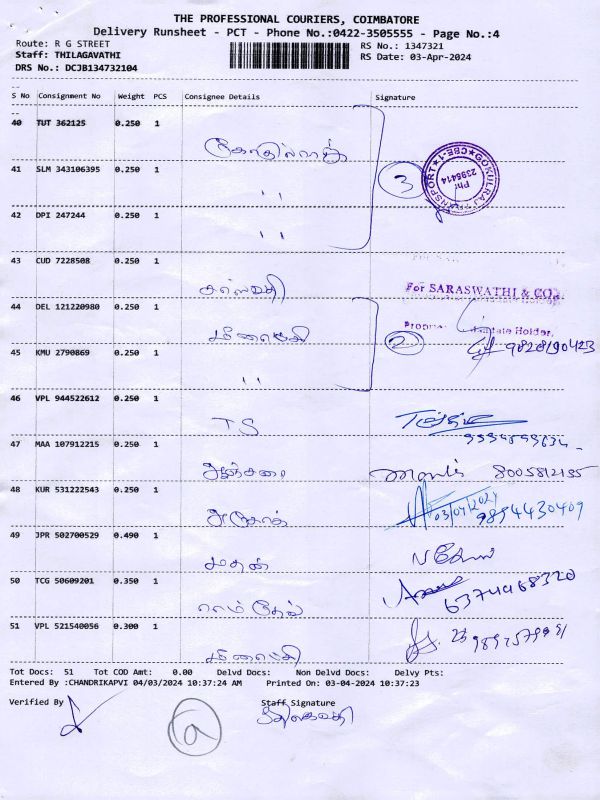 THE PROFESSIONAL COURIERS, COIMBATORE
Delivery Runsheet - PCT - Phone No.:0422-3505555 - Page No.:4
Route: R G STREET
RS No.: 1347321
Staff: THILAGAVATHI
RS Date: 03-Apr-2024
DRS No.: DCJB134732104
S No Consignment No Weight PCS Consignee Details Signature
40 TUT 362125 0.250 1
41 SLM 343106395 0.250 1
3
GOKULRAJ TRANSPORT ★ CBE-1 ★
Ph: 2395414
" 
42 DPI 247244 0.250 1
"
43 CUD 7228508 0.250 1
சரஸ்வதி
For SARASWATHI & CO.,
44 DEL 121220980 0.250 1
மீனாட்சி
2
45 KMU 2790869 0.250 1
"
46 VPL 944522612 0.250 1
TS
47 MAA 107912215 0.250 1
8005812155
48 KUR 531222543 0.250 1
அசோக்
03/04/2024
9894430409
49 JPR 502700529 0.490 1
மதன்
50 TCG 50609201 0.350 1
ராம்தேவ்
6374468320
51 VPL 521540056 0.300 1
மீனாட்சி
Tot Docs: 51 Tot COD Amt: 0.00 Delvd Docs: Non Delvd Docs: Delvy Pts:
Entered By :CHANDRIKAPVI 04/03/2024 10:37:24 AM Printed On: 03-04-2024 10:37:23
Verified By
Staff Signature